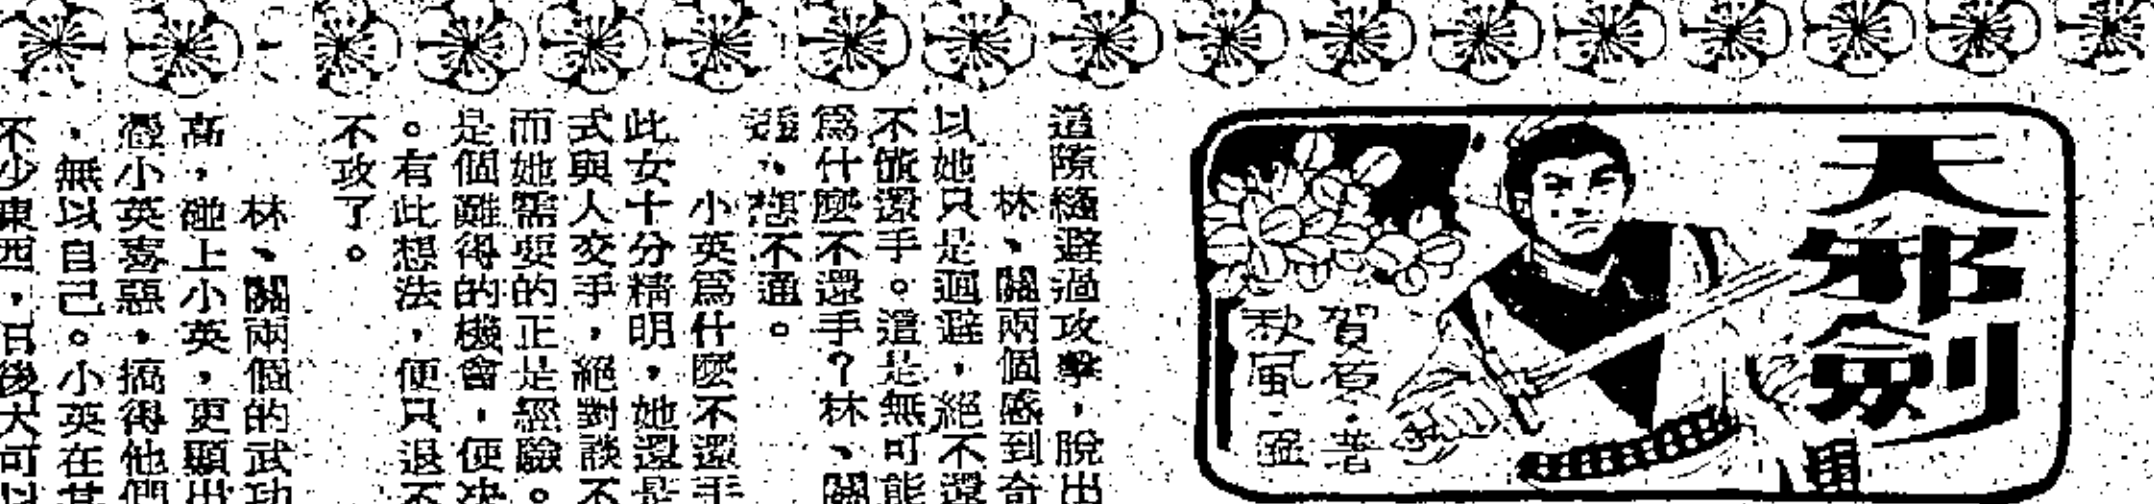 天邪劍
賀貢·著
秋風·盫
道隙縫避過攻擊，脫出
林、關兩個感到奇
以她只是迴避，絕不還
不能還手。這是無可能
爲什麼不還手？林、關
想不通。
小英爲什麼不還手
此女十分精明，她還是
式與人交手，絕對談不
而她需要的正是經驗。
是個難得的機會，便決
。有此想法，便只退不
不攻了。
林、關兩個的武功
高，碰上小英，更顯出
憑小英喜惡，搞得他們
，無以自己。小英在其
不少東西，日後大可以